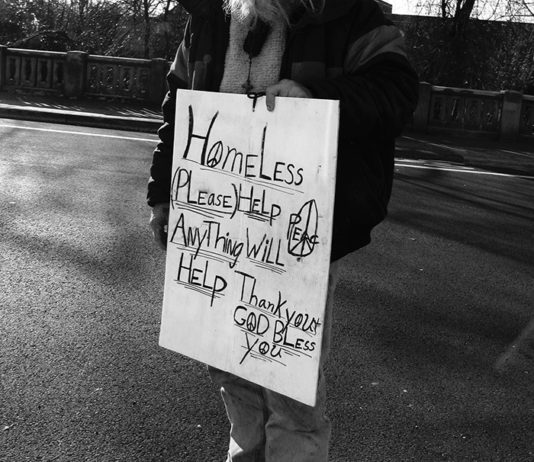 HomeLess
(PLease) HeLp
Peace
AnyThing WiLL
HeLp
Thank you
GOD BLess
you